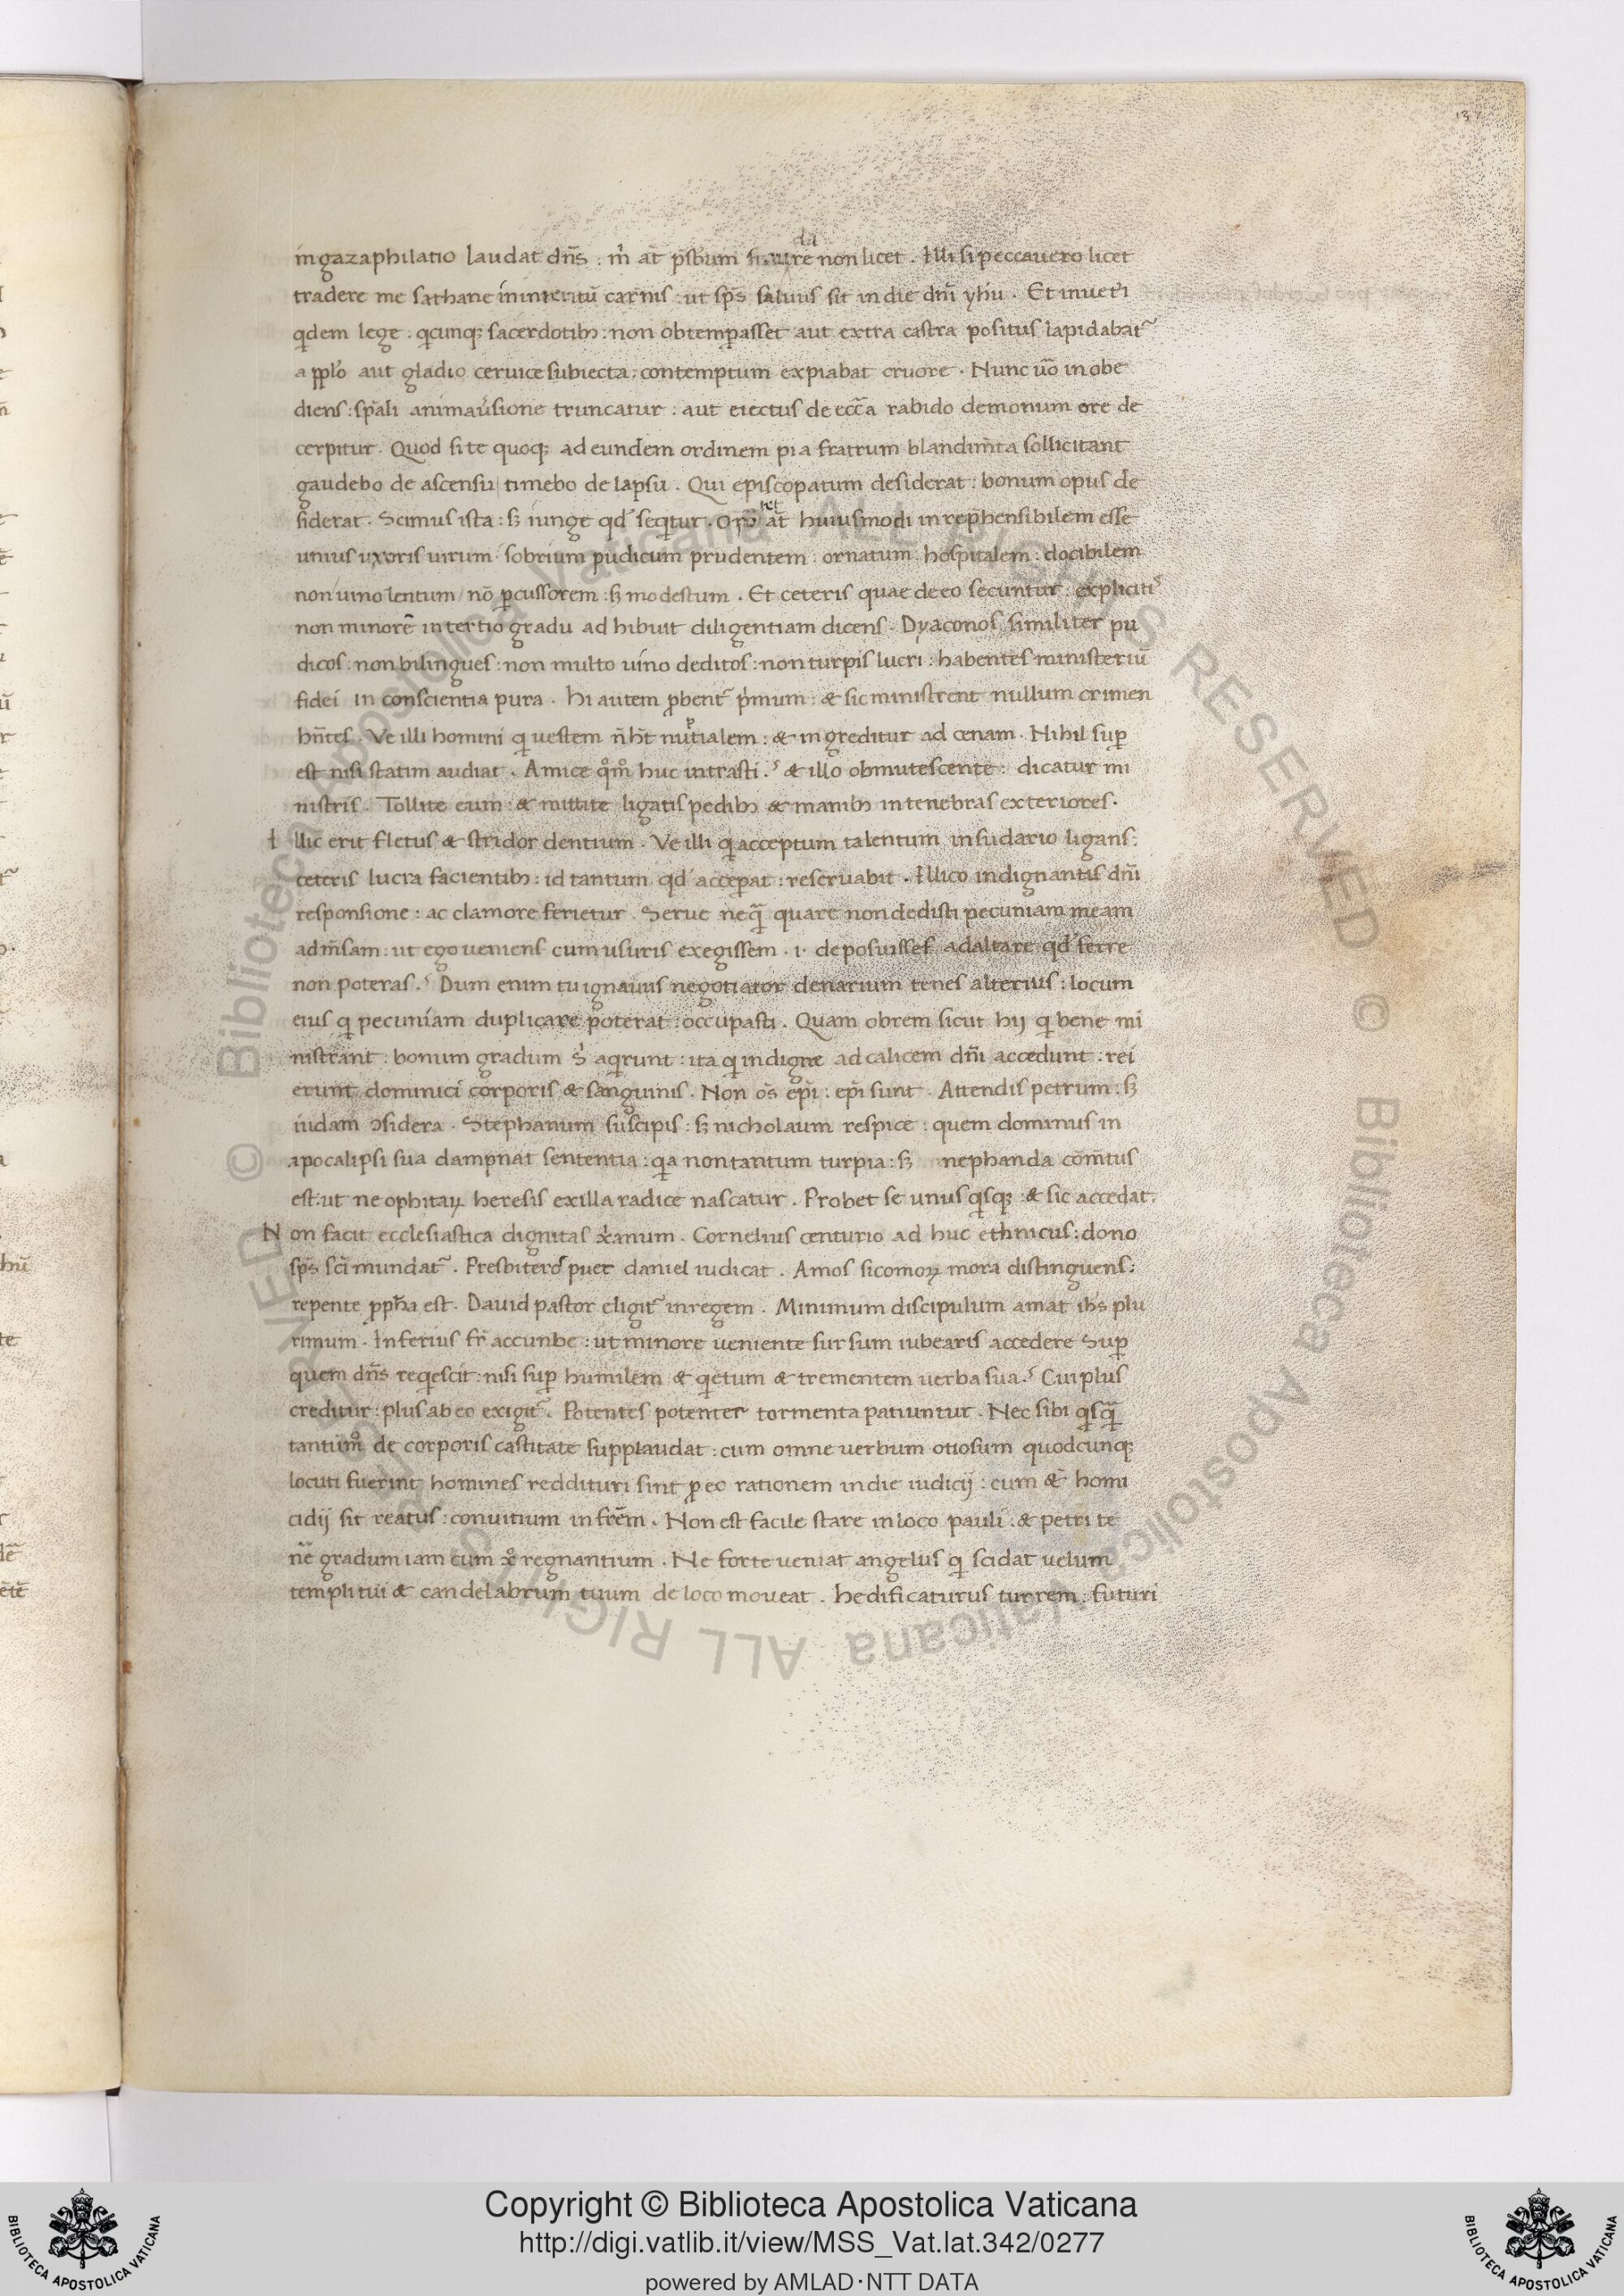 137
in gazaphilatio laudat dn̄s . m̓ at̄ p̄sb̄um
da
re non licet . Illi si peccauero licet
tradere me sathane in interitū carnis : ut sp̄s saluus sit in die dn̄i yħu . Et in uet̓i
q̓dem lege . q̓cunqꝫ sacerdotibꝫ : non obtemꝑasset aut extra castra positus lapidabat᷑
a pp̄lo aut gladio ceruice subiecta : contemptum expiabat cruore . Nunc ūo inobe
diens : sp̄ali animau̓sione truncatur : aut eiectus de ecc̄a rabido demonum ore de
cerpitur . Quod si te quoqꝫ ad eundem ordinem pia fratrum blandim̄ta sollicitant
gaudebo de ascensu / timebo de lapsu . Qui episcopatum desiderat : bonum opus de
siderat . Scimus ista : sꝫ iunge qd̓ seq̓tur . Opō
tet
at̄ huiusmodi inrep̄hensibilem esse
unius uxoris uirum . sobrium pudicum prudentem : ornatum : hospitalem : docibilem
non uinolentum / nō ꝑcussorem : sꝫ modestum . Et ceteris quae de eo secuntur : explicitis
non minorē in tertio gradu adhibuit diligentiam dicens . Dyaconos similiter pu
dicos : non bilingues : non multo uino deditos : non turpis lucri : habentes ministeriū
fidei in conscientia pura . hi autem ꝓbent᷑ p̓mum : & sic ministrent nullum crimen
hn̄tes . Ve illi homini q̓ uestem n̄ ht̄ nu
p
tialem : & ingreditur ad cenam . Nihil suꝑ
est nisi statim audiat . Amice qͦmͦ huc intrasti .ˀ & illo obmutescente : dicatur mi
nistris . Tollite eum : & mittite ligatis pedibꝫ & manibꝫ in tenebras exteriores .
I llic erit fletus & stridor dentium . Ve illi q̓ acceptum talentum in sudario ligans :
ceteris lucra facientibꝫ : id tantum qd̓ acceꝑat : reseruabit . Illico indignantis dn̄i
responsione : ac clamore ferietur . Serue neqᷓ quare non dedisti pecuniam meam
ad m̄sam : ut ego ueniens cum usuris exegissem . i . deposuisses ad altare qd̓ ferre
non poteras .ˀ Dum enim tu ignauus negotiator denarium tenes alterius : locum
eius q̓ pecuniam duplicare poterat : occupasti . Quam obrem sicut hij q̓ bene mi
nistrant : bonum gradum s̓ aq̓runt : ita q̓ indigne ad calicem dn̄i accedunt : rei
erunt dominici corporis & sanguinis . Non oс̄s ep̄i : ep̄i sunt . Attendis petrum : sꝫ
iudam ↄsidera . Stephanum suscipis : sꝫ nicholaum respice : quem dominus in
apocalipsi sua dampnat sententia : q̓a non tantum turpia : sꝫ nephanda com̄tus
est : ut ne ophitaꝝ heresis ex illa radice nascatur . Probet se unus q̓sqꝫ : & sic accedat .
N on facit ecclesiastica dignitas x̓anum . Cornelius centurio ad huc ethnicus : dono
sp̄s sc̄i mundat᷑ . Presbiteros puer daniel iudicat . Amos sicomoꝝ mora distinguens :
repente ꝓph̄a est . Dauid pastor eligit᷑ in regem . Minimum discipulum amat ih̄s plu
rimum . Inferius fr̄ accunbe : ut minore ueniente sursum iubearis accedere Suꝑ
quem dn̄s req̓escit : nisi suꝑ humilem & q̓etum & trementem uerba sua .ˀ Cui plus
creditur : plus ab eo exigit᷑ . Potentes potenter tormenta patiuntur . Nec sibi q̓sqᷓ
tantum̊ de corporis castitate supplaudat : cum omne uerbum otiosum quodcunqꝫ
locuti fuerint homines reddituri sint ꝓ eo rationem in die iudicij : cum &̄ homi
cidij sit reatus : conuitium in fr̄em . Non est facile stare in loco pauli : & petri te
nē gradum iam cum xͦ regnantium . Ne forte ueniat angelus q̓ scidat uelum
templi tui & candelabrum tuum de loco moueat . hedificaturus turrem : futuri
Copyright © Biblioteca Apostolica Vaticana
http://digi.vatlib.it/view/MSS_Vat.lat.342/0277
powered by AMLAD·NTT DATA
BIBLIOTECA APOSTOLICA VATICANA
BIBLIOTECA APOSTOLICA VATICANA
© Biblioteca Apostolica Vaticana ALL RIGHTS RESERVED © Biblioteca Apostolica Vaticana ALL RIGHTS RESERVED